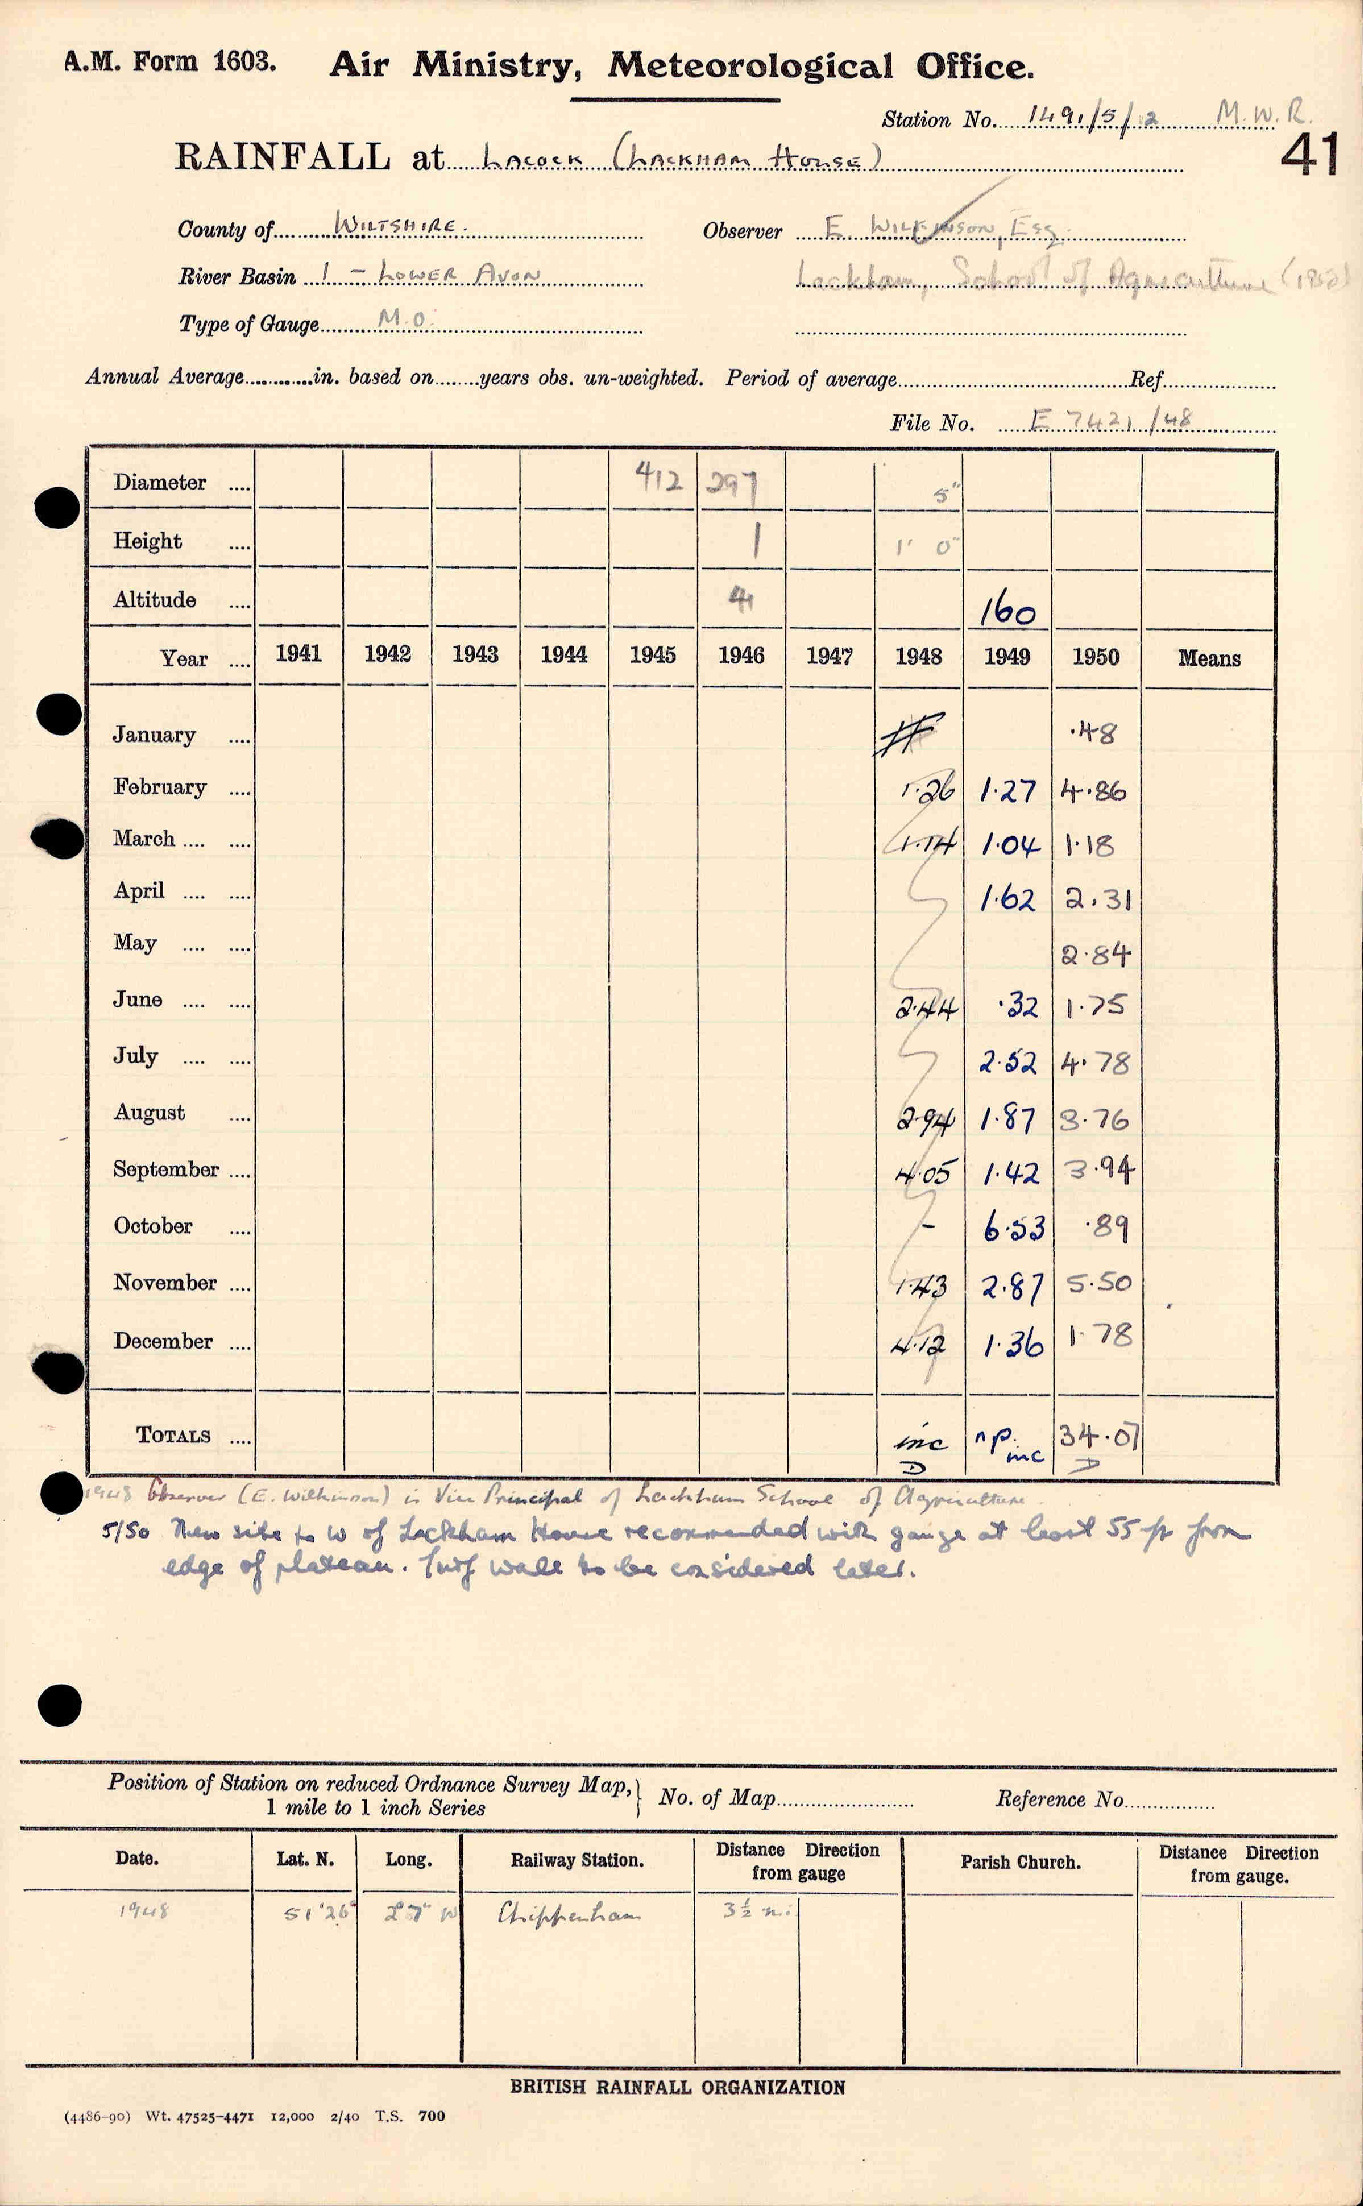 A.M. Form 1603. Air Ministry, Meteorological Office.
Station No. 1491/5/12 M.W.R.
41
RAINFALL at LACOCK (LACKHAM HOUSE)
County of WILTSHIRE. Observer E. WILKINSON, Esq.
River Basin 1 - LOWER AVON Lackham, School of Agriculture
Type of Gauge M.O.
Annual Average............in. based on........years obs. un-weighted. Period of average........Ref........
File No. E 7421/48
Diameter .... 412 297 5"
Height .... 1 1' 0"
Altitude .... 160
Year .... 1941 1942 1943 1944 1945 1946 1947 1948 1949 1950 Means
January .... ·48
February .... 1·26 1·27 4·86
March .... .... 1·14 1·04 1·18
April .... .... 1·62 2·31
May .... .... 2·84
June .... .... 2·44 ·32 1·75
July .... .... 2·52 4·78
August .... 2·94 1·87 3·76
September .... 4·05 1·42 3·94
October .... - 6·53 ·89
November .... 1·43 2·87 5·50
December .... 4·12 1·36 1·78
TOTALS .... inc D np. inc 34·07 D
1948 Observer (E. Wilkinson) is Vice Principal of Lackham School of Agriculture.
5/50 New site to W of Lackham House recommended with gauge at least 55 ft from
edge of plateau. Turf wall to be considered later.
Position of Station on reduced Ordnance Survey Map, 1 mile to 1 inch Series } No. of Map........ Reference No........
Date. Lat. N. Long. Railway Station. Distance Direction from gauge Parish Church. Distance Direction from gauge.
1948 51°26' W Chippenham 3½ mi.
BRITISH RAINFALL ORGANIZATION
(4486-90) Wt. 47525-4471 12,000 2/40 T.S. 700